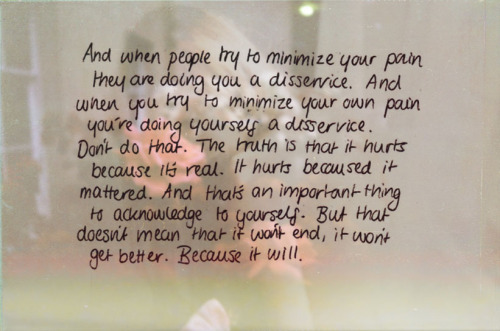 And when people try to minimize your pain
they are doing you a disservice. And
when you try to minimize your own pain
you're doing yourself a disservice.
Don't do that. The truth is that it hurts
because it's real. It hurts becaused it
mattered. And that's an important thing
to acknowledge to yourself. But that
doesn't mean that it won't end, it won't
get better. Because it will.